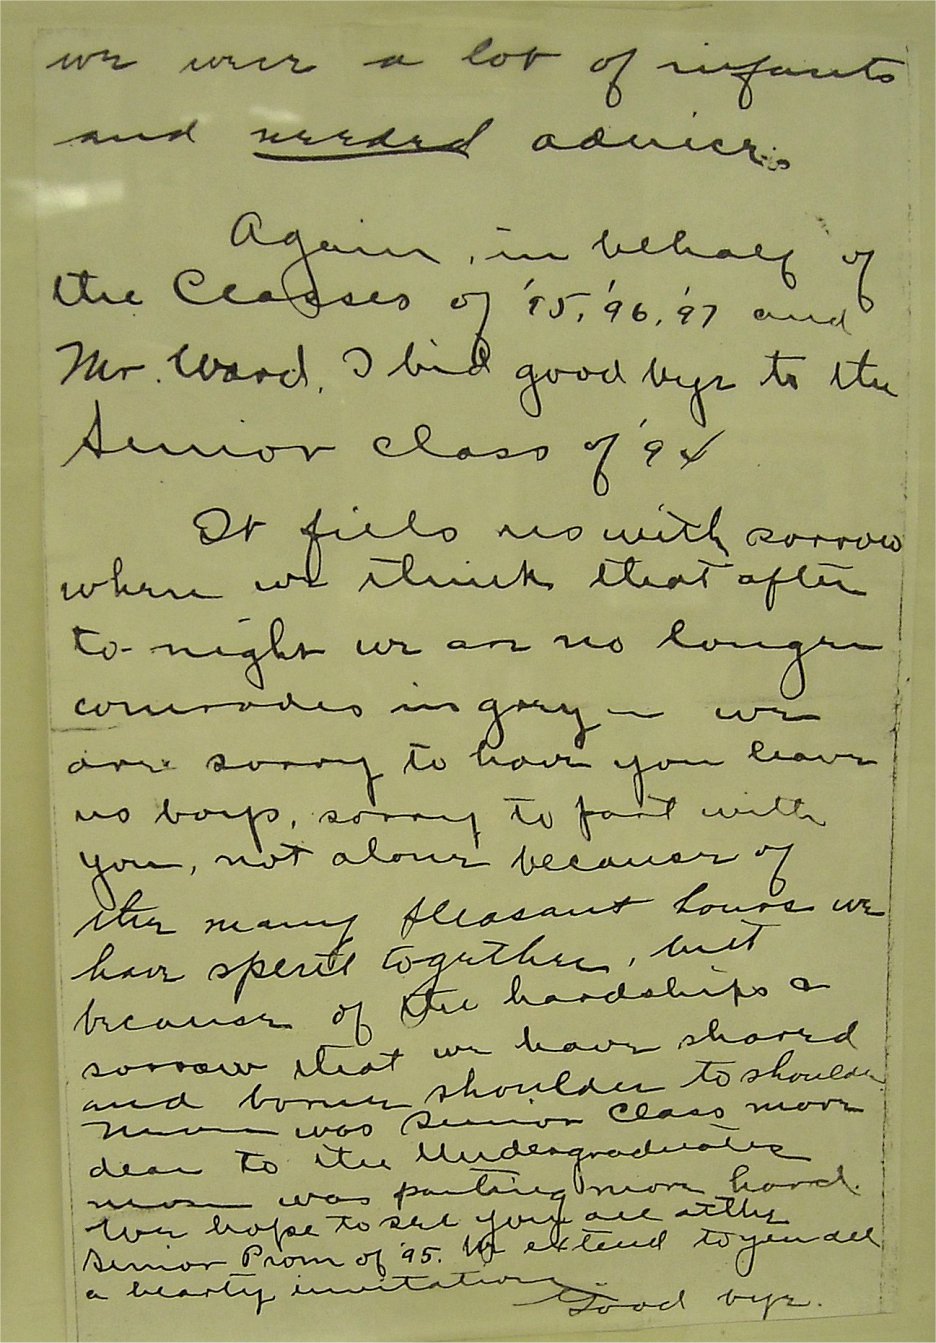 we were a lot of infants
and needed advice.
Again, in behalf of
the Classes of '95, '96, '97 and
Mr. Ward, I bid good bye to the
Senior class of '94
It fills us with sorrow
when we think that after
to-night we are no longer
comrades in grey — we
are sorry to have you leave
us boys, sorry to part with
you, not alone because of
the many pleasant hours we
have spent together, but
because of the hardships &
sorrow that we have shared
and borne shoulder to shoulder
Never was Senior Class more
dear to the Undergraduates
never was parting more hard.
We hope to see you all at the
Senior Prom of '95. We extend to you all
a hearty invitation
Good bye.